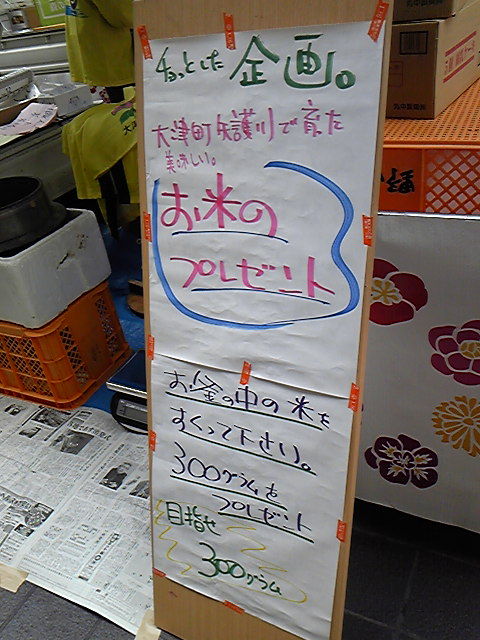 ちょっとした企画。
大津町矢護川で育った
美味しい。
お米の
プレゼント
お釜の中の米を
すくって下さい。
300グラムを
プレゼント
目指せ
300グラム